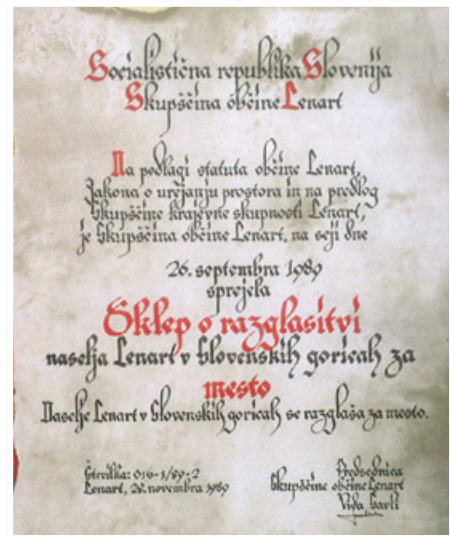 Socialistična republika Slovenija
Skupščina občine Lenart
Na podlagi statuta občine Lenart,
Zakona o urejanju prostora in na predlog
Skupščine krajevne skupnosti Lenart,
je Skupščina občine Lenart, na seji dne
26. septembra 1989
sprejela
Sklep o razglasitvi
naselja Lenart v Slovenskih goricah za
mesto
Naselje Lenart v Slovenskih goricah se razglaša za mesto.
Številka: 016-1/89-2
Lenart, 29. novembra 1989
Predsednica
Skupščine občine Lenart
Vida Šavli